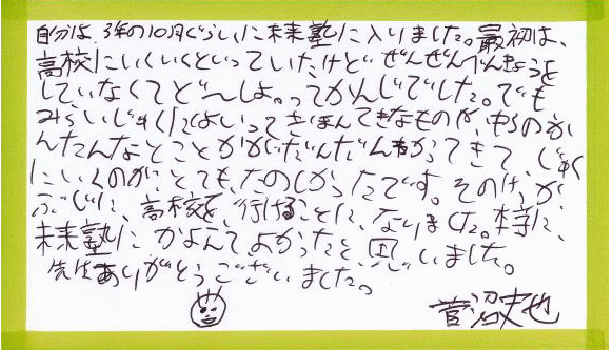 自分は、3年の10月ぐらいに未来塾に入りました。最初は、
高校にいくいくといっていたけどぜんぜんべんきょうを
していなくてど〜しよ。ってかんじでした。でも
みらいじゅくにはいってきほんてきなものや、ものの
かんたんなとことかがだんだん分かってきて、じゅく
にいくのがとてもたのしかったです。そのけっか
ぶじに、高校を、行けることに、なりました。本当に、
未来塾にかよえて、よかったと、思いました。
先生ありがとうございました。
菅沼丈也